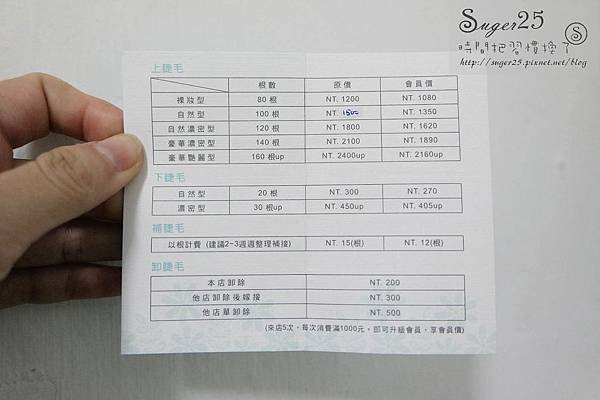 Suger25
時間把習慣換了
http://suger25.pixnet.net/blog
上睫毛
根數 原價 會員價
裸妝型 80根 NT. 1200 NT. 1080
自然型 100根 NT. 1500 NT. 1350
自然濃密型 120根 NT. 1800 NT. 1620
豪華濃密型 140根 NT. 2100 NT. 1890
豪華艷麗型 160根up NT. 2400up NT. 2160up
下睫毛
自然型 20根 NT. 300 NT. 270
濃密型 30根up NT. 450up NT. 405up
補睫毛
以根計費 (建議2~3週週整理補接) NT. 15(根) NT. 12(根)
卸睫毛
本店卸除 NT. 200
他店卸除後嫁接 NT. 300
他店單卸除 NT. 500
(來店5次，每次消費滿1000元，即可升級會員，享會員價)